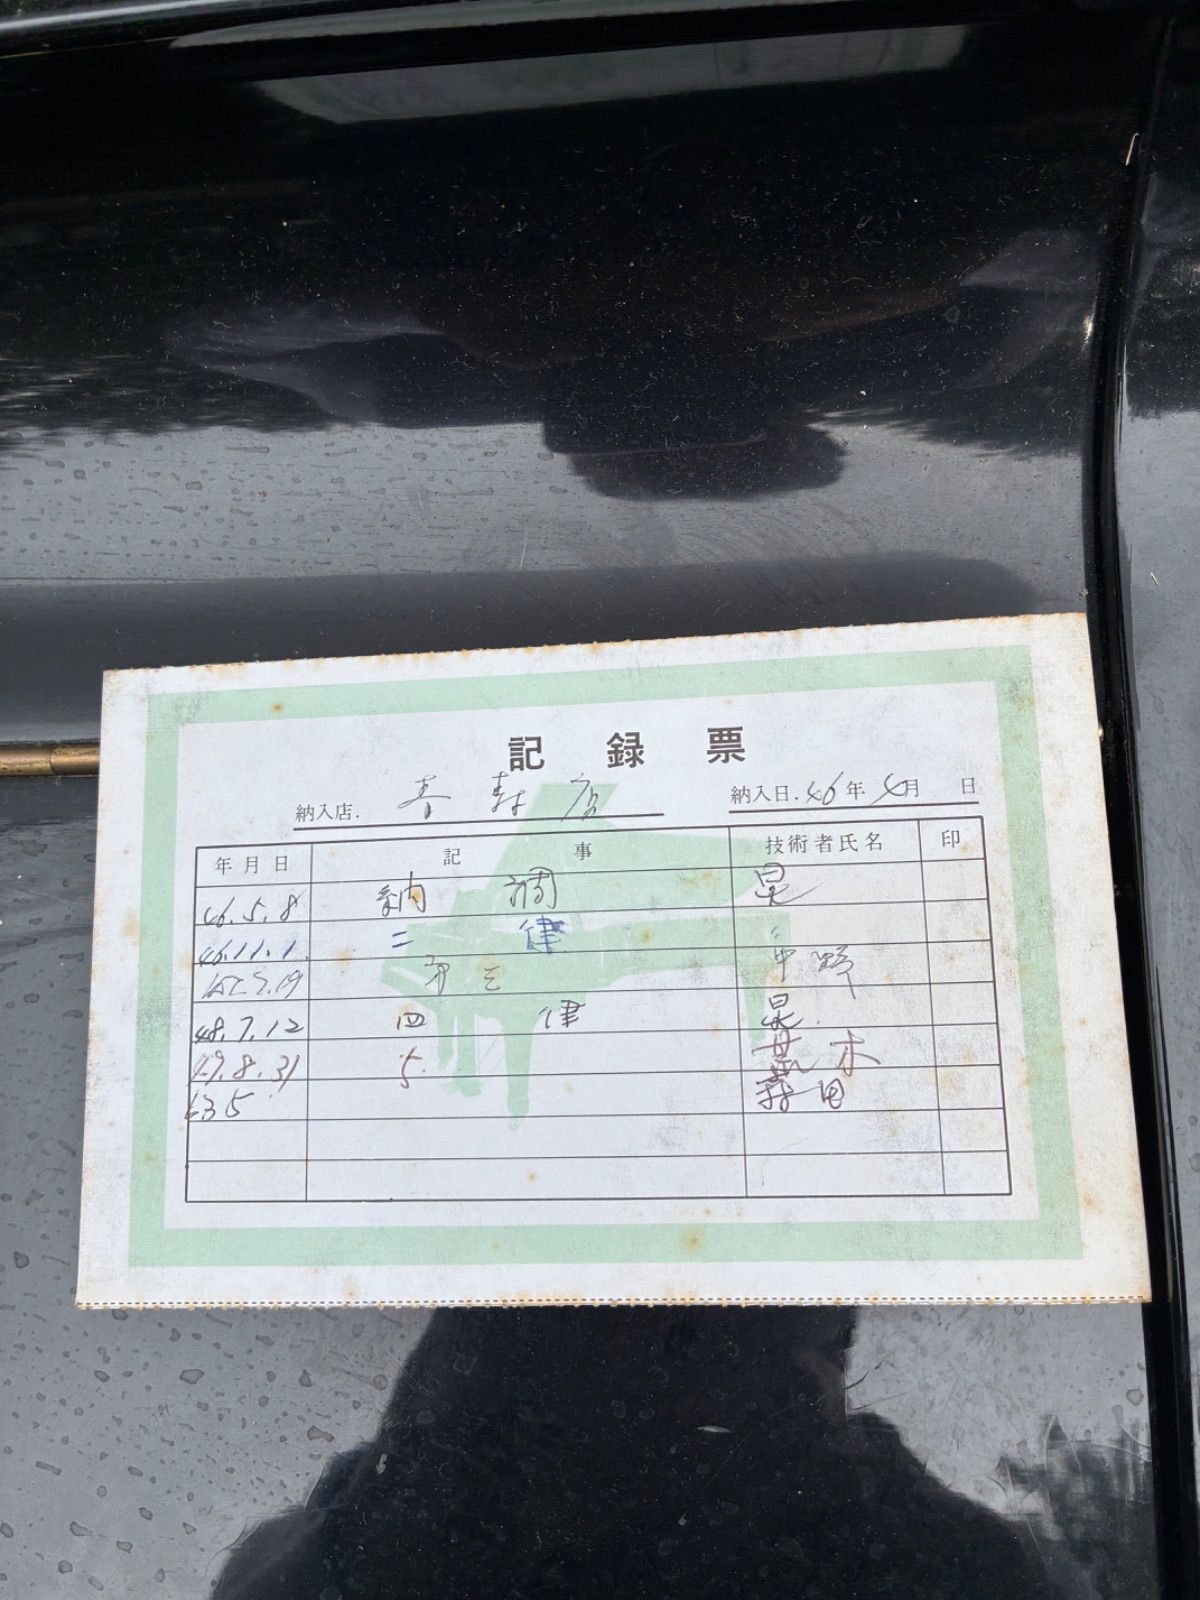 記録票
納入店. 春寿店 納入日. 46年 4月 日
年月日 記事 技術者氏名 印
46.5.8 納調 晃
46.11.1 二律 〃
中野
48.7.12 四律 晃
49.8.31 5 荒木
63 5